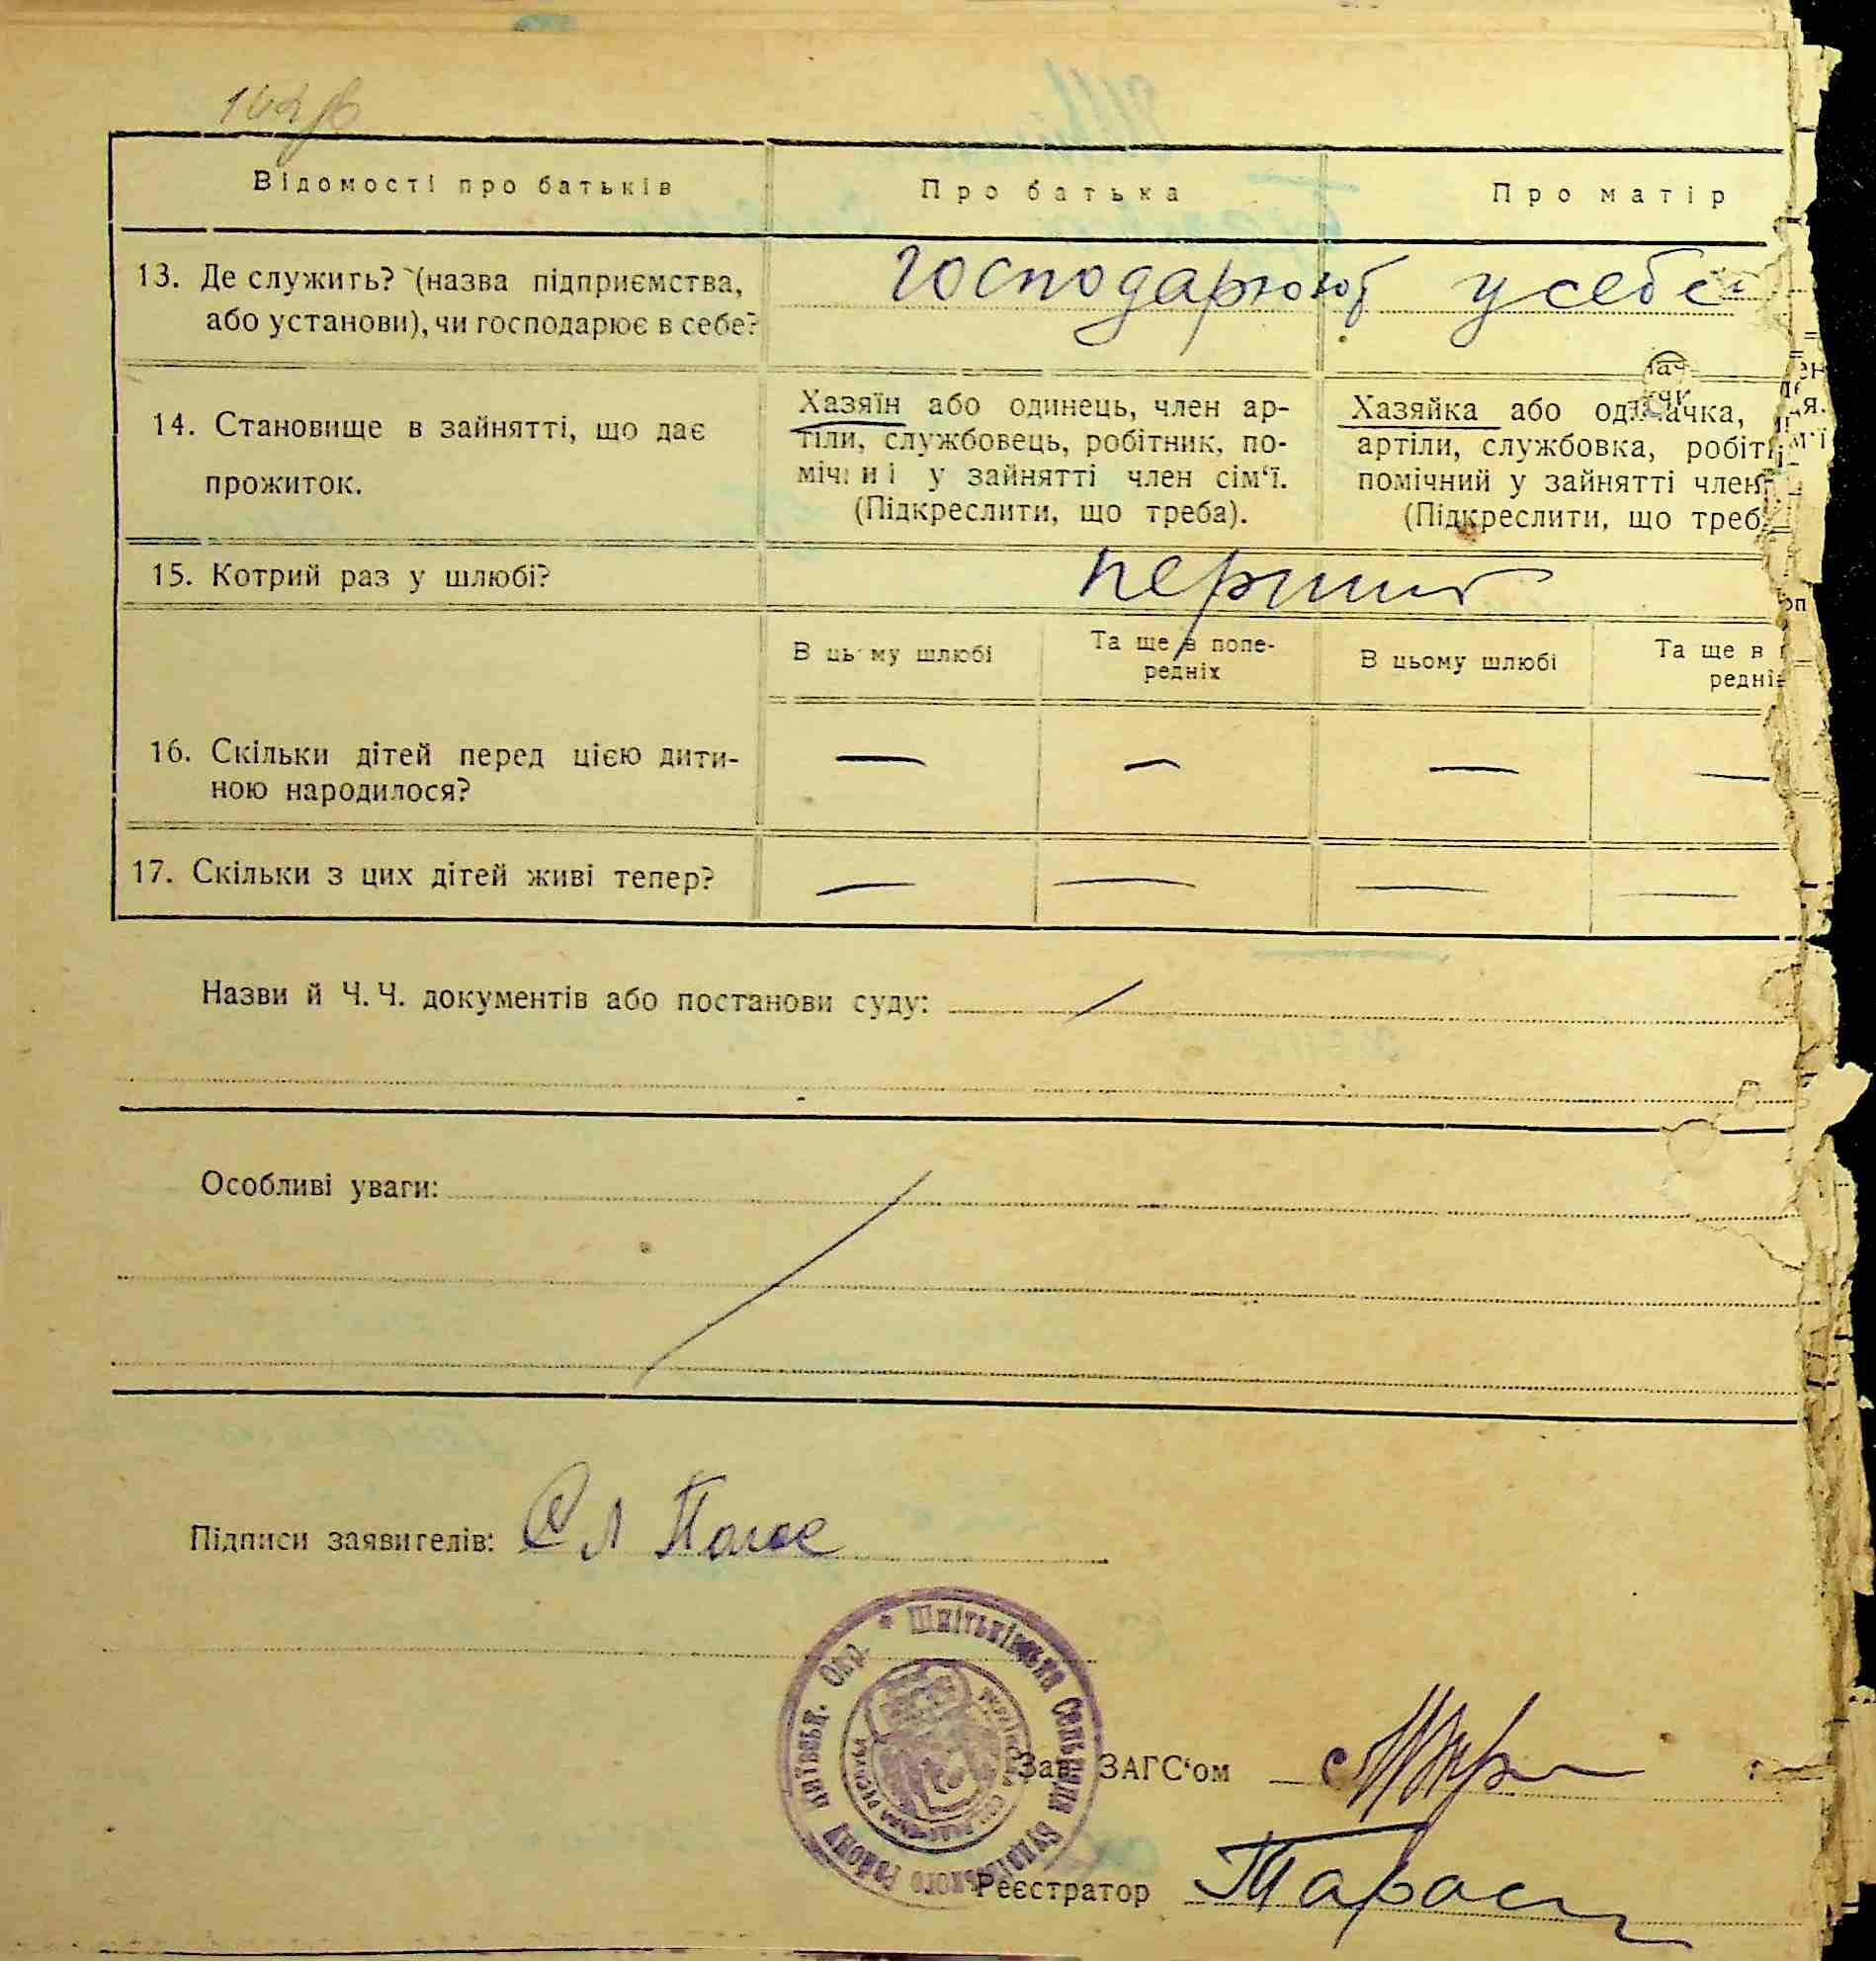 Відомості про батьків
Про батька
Про матір
13. Де служить? (назва підприємства,
або установи), чи господарює в себе?
господарюют у себе
14. Становище в зайнятті, що дає
прожиток.
Хазяїн або одинець, член ар-
тіли, службовець, робітник, по-
мічний у зайнятті член сім‘ї.
(Підкреслити, що треба).
Хазяйка або одиначка,
артіли, службовка, робіт
помічний у зайнятті член
(Підкреслити, що треб
15. Котрий раз у шлюбі?
перший
В цьому шлюбі
Та ще в попе-
редніх
В цьому шлюбі
Та ще в п
редніх
16. Скільки дітей перед цією дити-
ною народилося?
— — — —
17. Скільки з цих дітей живі тепер?
— — — —
Назви й Ч. Ч. документів або постанови суду:
Особливі уваги:
Підписи заявителів:
* Шпітьківська Сельрада Будаївського Району Київськ. Окр.
Зав. ЗАГС‘ом
Реєстратор Тарас